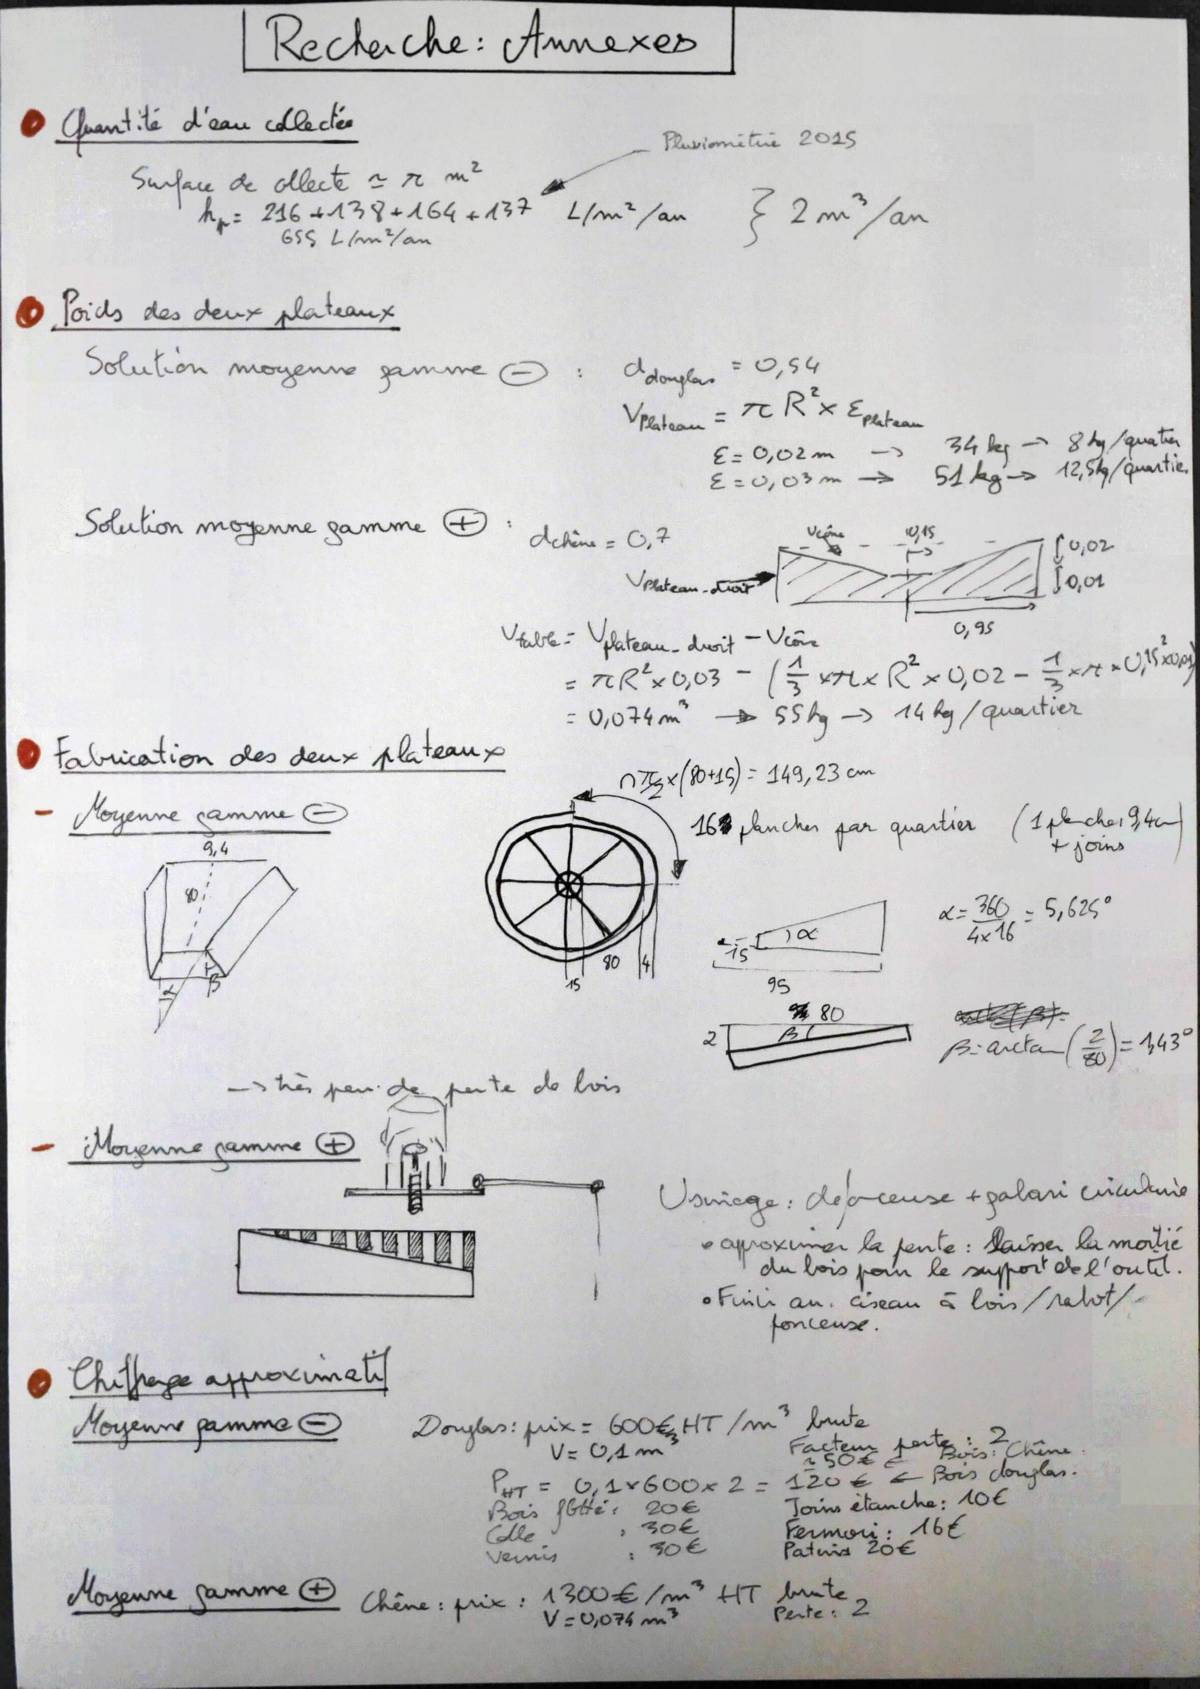 Recherche: Annexes
Quantité d'eau collectée
Pluviométrie 2015
Surface de collecte ≃ π m²
hp = 216+138+164+137 L/m²/an } 2 m³/an
655 L/m²/an
Poids des deux plateaux
Solution moyenne gamme ⊖ : d douglas = 0,54
V Plateau = π R² × Ɛ plateau
Ɛ = 0,02 m → 34 kg → 8 kg/quartier
Ɛ = 0,03 m → 51 kg → 12,5 kg/quartier
Solution moyenne gamme ⊕ : d chêne = 0,7
V cône 0,15
0,02
V plateau_droit
0,01
0,95
V table = V plateau_droit - V cône
= πR² × 0,03 - (1/3 × π × R² × 0,02 - 1/3 × π × 0,15² × 0,01)
= 0,074 m³ → 55 kg → 14 kg/quartier
Fabrication des deux plateaux
π/2 × (80+15) = 149,23 cm
- Moyenne gamme ⊖
16 planches par quartier (1 planche: 9,4cm
+ joins)
9,4
80
α β
15 80 4
α
15
95
α = 360/(4×16) = 5,625°
80
2 β
β = arctan (2/80) = 1,43°
→ très peu de perte de bois
- Moyenne gamme ⊕
Usinage: défonceuse + gabari circulaire
• approximer la pente: laisser la moitié
du bois pour le support de l'outil.
• Fini au ciseau à bois/rabot/
ponceuse.
Chiffrage approximatif
Moyenne gamme ⊖ Douglas: prix = 600€ HT/m³ brute
V = 0,1 m³ Facteur perte: 2
≃ 50€ ← Bois: Chêne.
P HT = 0,1 × 600 × 2 = 120€ ← Bois douglas.
Bois flotté: 20€ Joins étanche: 10€
Colle : 30€ Fermoir: 16€
Vernis : 30€ Patins 20€
Moyenne gamme ⊕ Chêne: prix: 1300€/m³ HT brute
V = 0,074 m³ Perte: 2